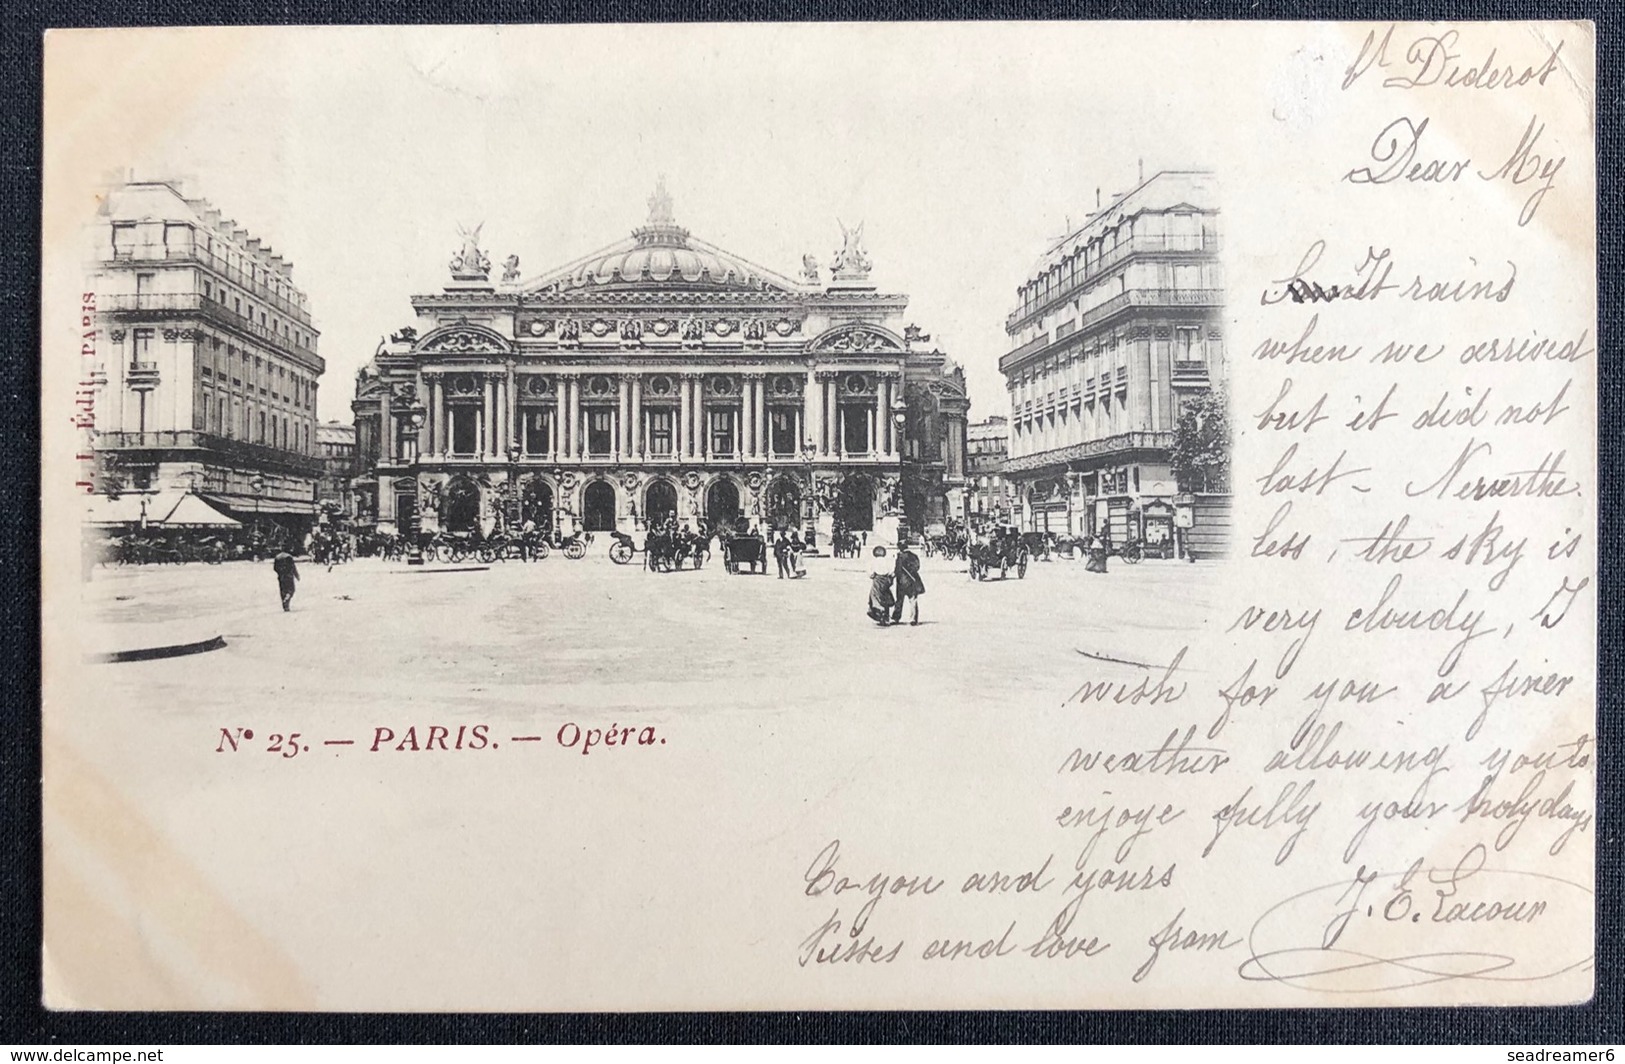 bd Diderot
Dear My
It rains
when we arrived
but it did not
last - Neverthe.
less, the sky is
very cloudy, I
wish for you a finer
weather allowing you to
enjoye fully your holydays
To you and yours
Kisses and love from
J. E. Lacour
J. L. Édit., PARIS
N° 25. — PARIS. — Opéra.
delcampe.net
seadreamer6